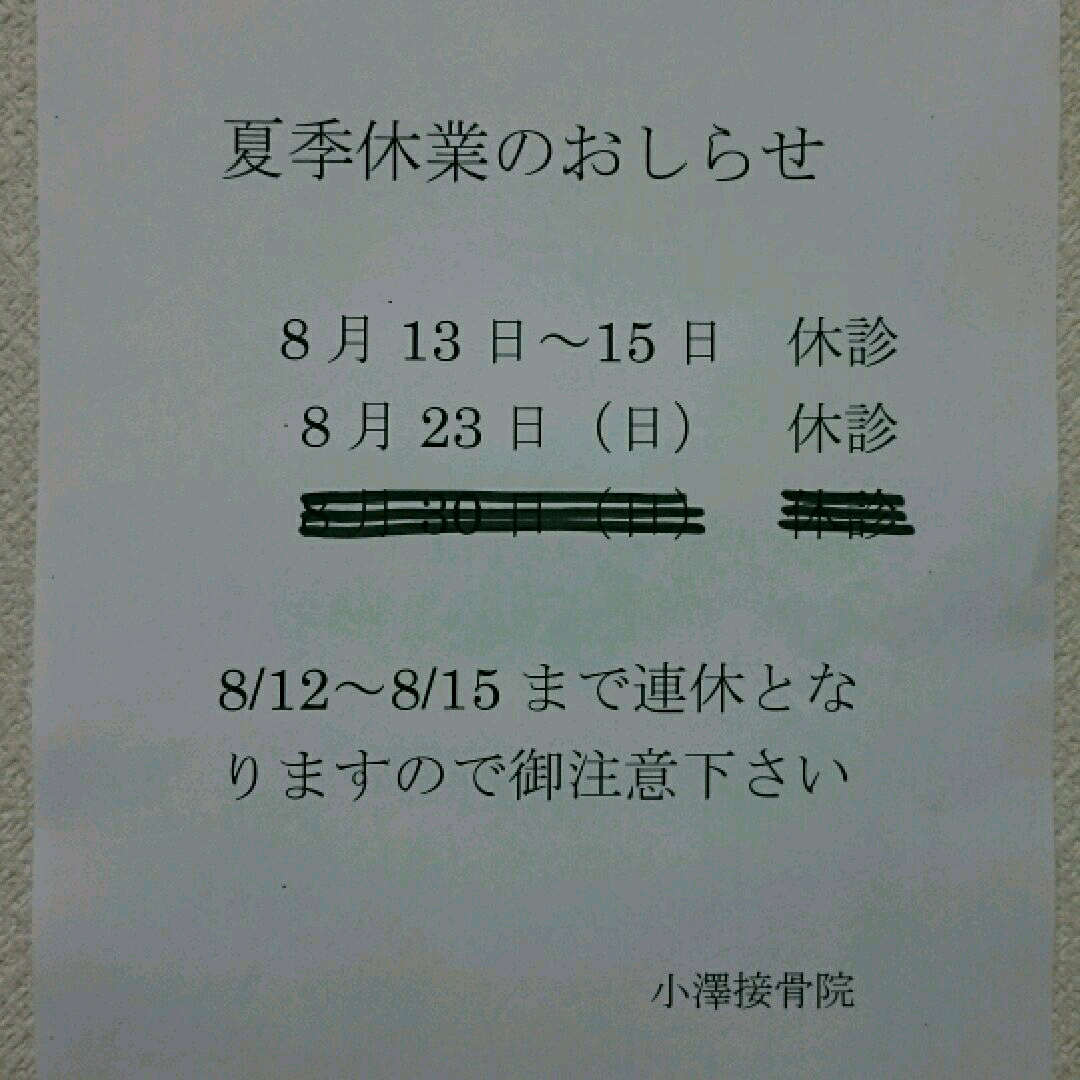 夏季休業のおしらせ
8月13日～15日　休診
8月23日（日）　休診
8月30日（日）　休診
8/12～8/15まで連休とな
りますので御注意下さい
小澤接骨院